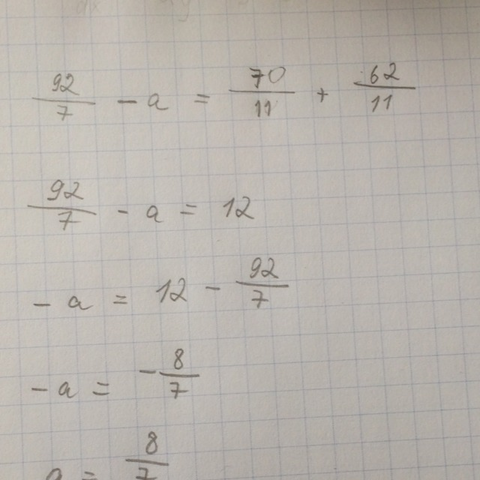 92/7 - a = 70/11 + 62/11
92/7 - a = 12
- a = 12 - 92/7
- a = - 8/7
a = 8/7